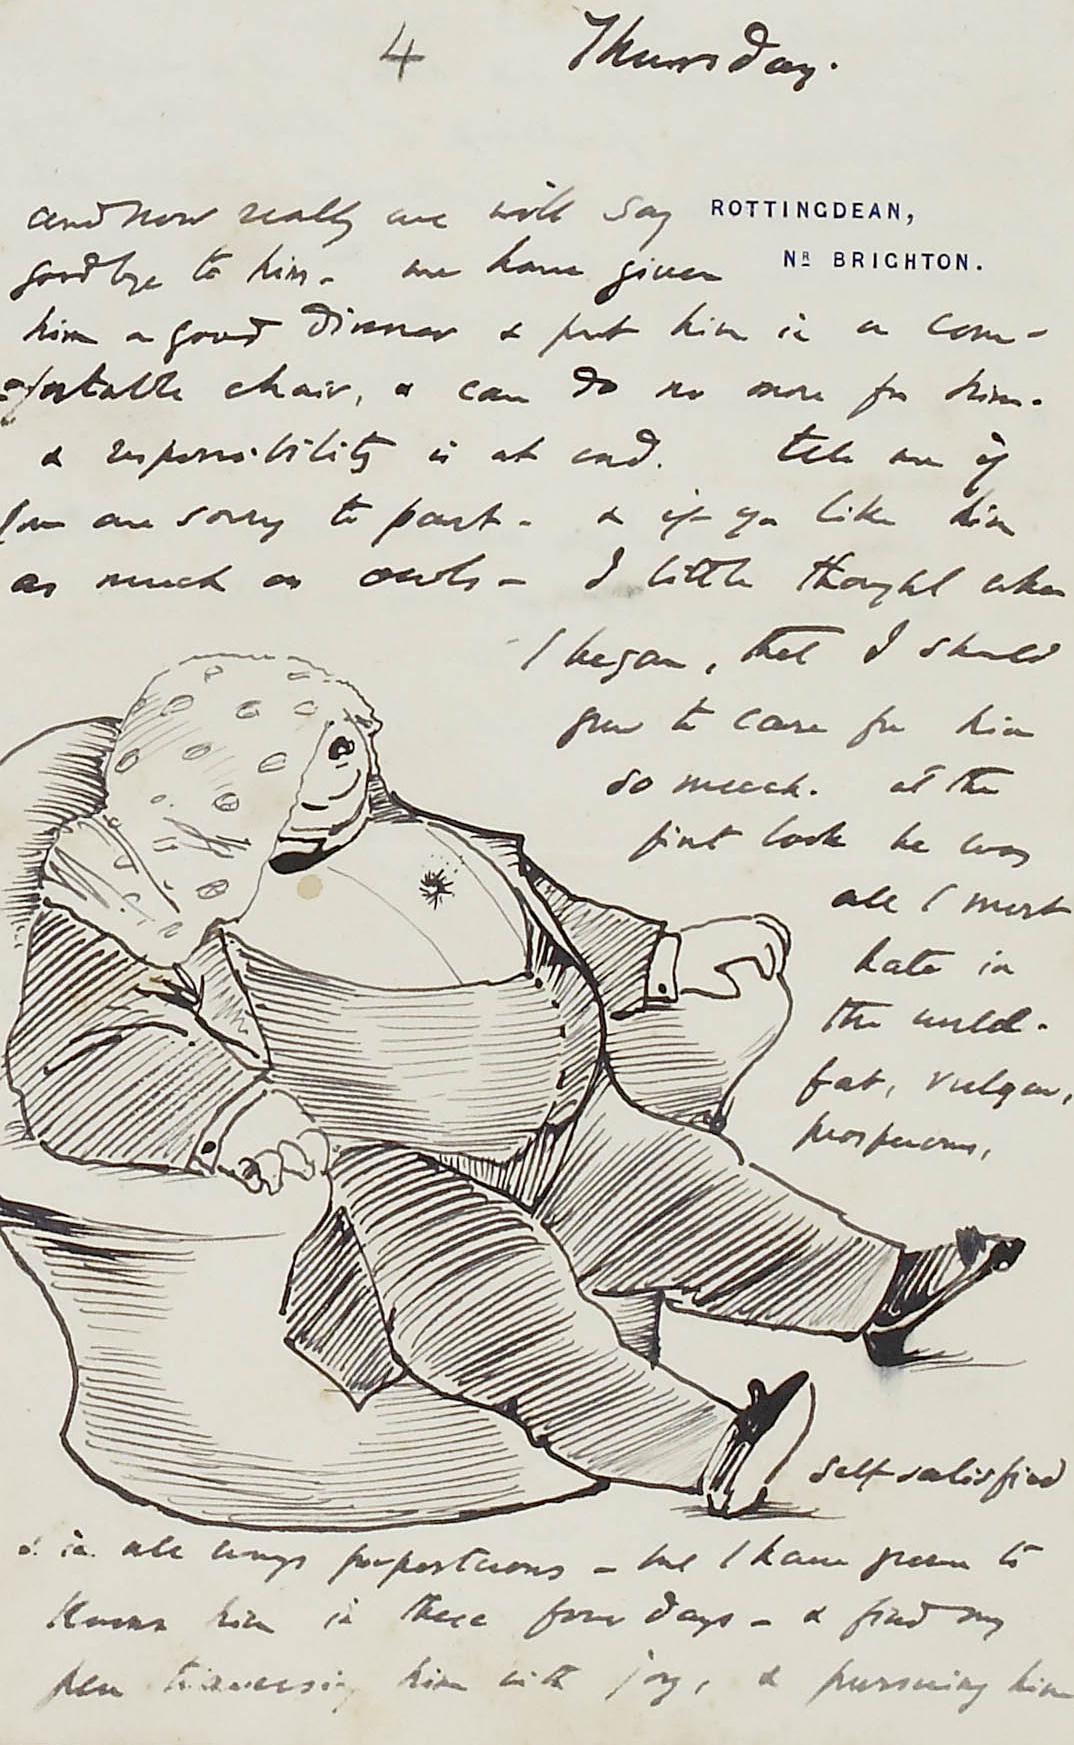 4 Thursday.
ROTTINGDEAN,
NR BRIGHTON.
and now really we will say
goodbye to him - we have given
him a good dinner & put him in a com-
fortable chair, & can do no more for him.
& responsibility is at end. tell me if
you are sorry to part - & if you like him
as much as owls - I little thought when
I began, that I should
grow to care for him
so much. at the
first look he was
all I most
hate in
the world.
fat, vulgar,
prosperous,
self-satisfied
& in all ways preposterous - but I have grown to
know him in these four days - & find my
pen traversing him with joy, & pursuing him